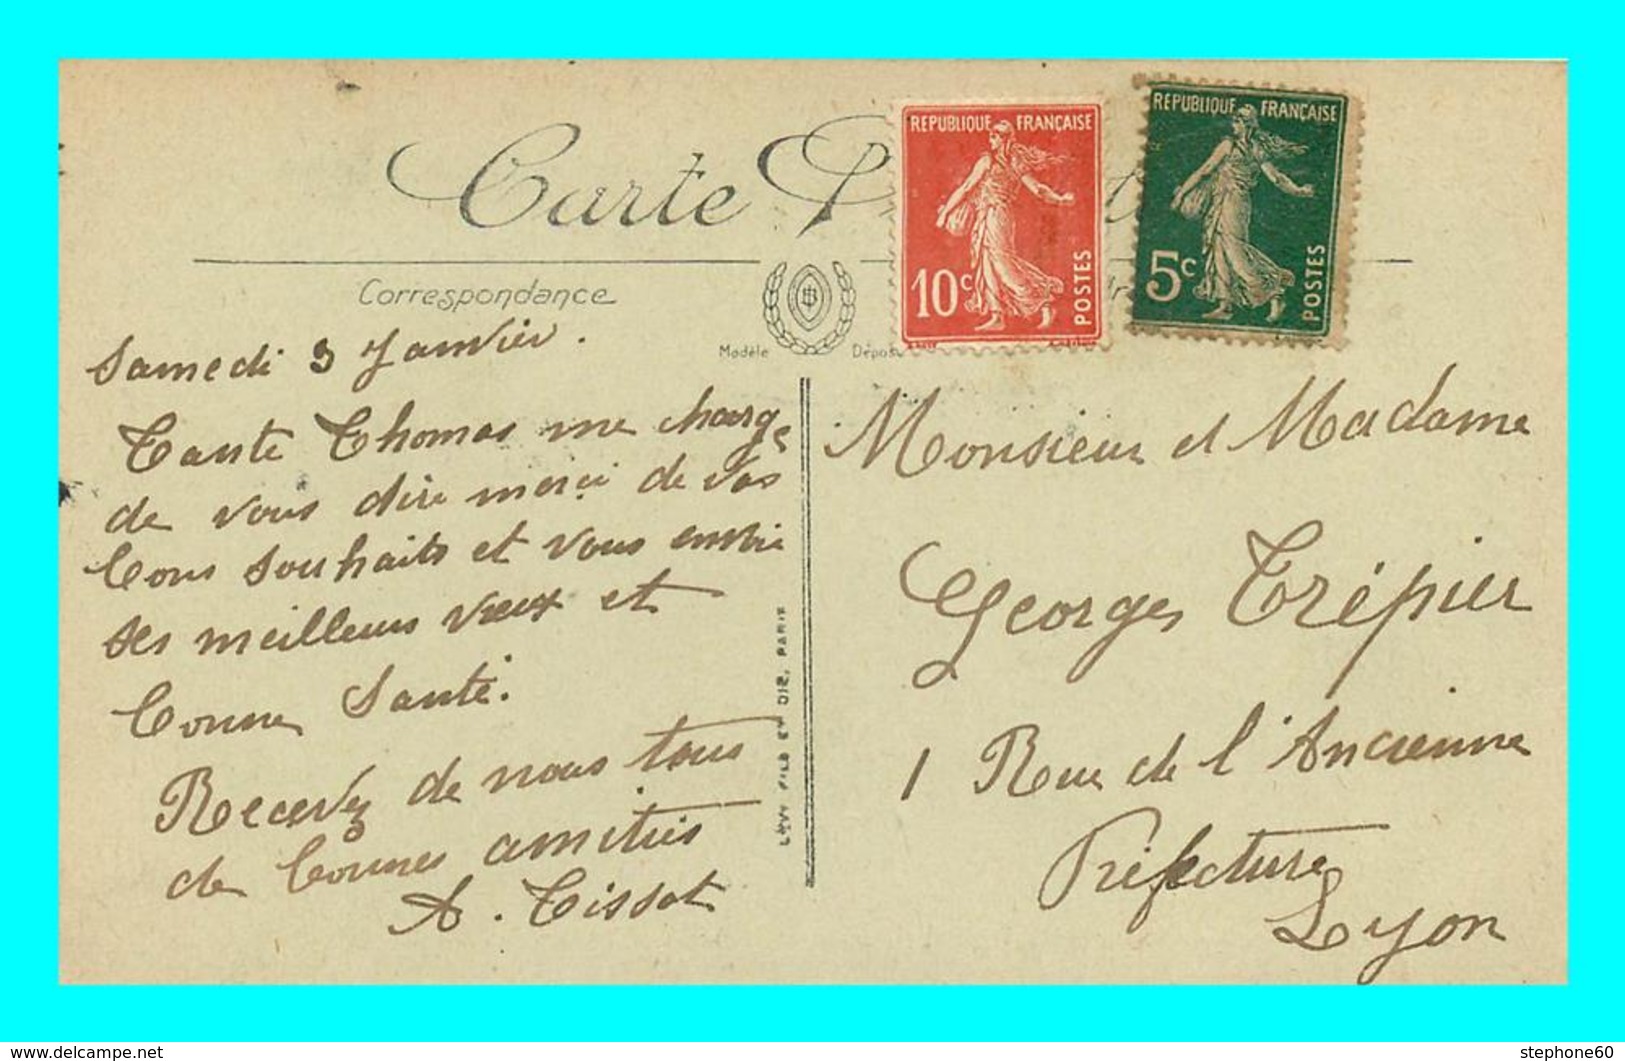 Carte P
REPUBLIQUE FRANÇAISE
10c
POSTES
REPUBLIQUE FRANÇAISE
5c
POSTES
Correspondance
Modèle Dépos
Samedi 3 Janvier.
Tante Thomas me charge
de vous dire merci de vos
bons souhaits et vous envoie
ses meilleurs vœux et
bonne Santé.
Recevez de nous tous
de bonnes amitiés
A. Tissot
LÉVY FILS ET CIE, PARIS
Monsieur et Madame
Georges Trépier
1 Rue de l'Ancienne
Préfecture
Lyon
delcampe.net
stephone60